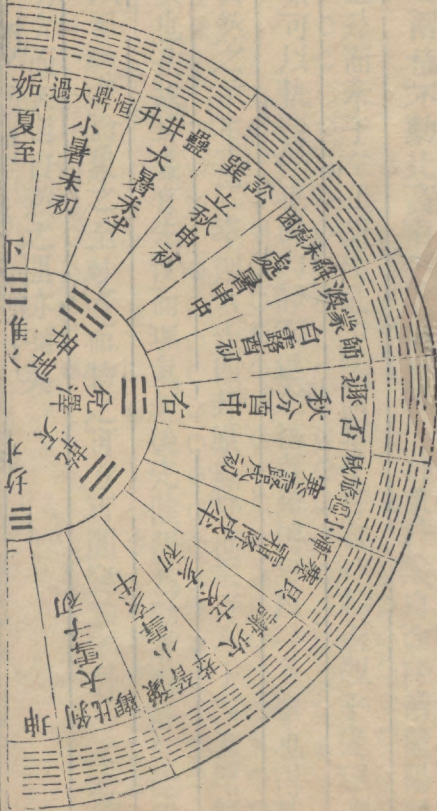 姤
夏至
大過鼎恒
小暑未初
升井蠱
大暑未半
巽訟
立秋申初
困未濟解
處暑申中
渙蒙師
白露酉初
遯否
秋分酉中
咸旅小過
寒露戌初
漸蹇艮
霜降戌半
謙
立冬亥初
萃晉豫
小雪亥半
觀比剝
大雪子初
坤
下
坤地
兌澤
右